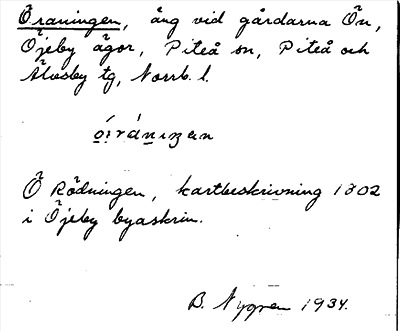 Öraningen, äng vid gårdarna Ön,
Öjeby ägor, Piteå sn, Piteå och
Älvsby tg, Norrb. l.
Ö Rödningen, kartbeskrivning 1802
i Öjeby byaskrin.
B. Nygren 1934.